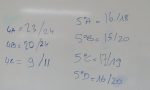 4A = 23/24
4B = 20/24
4C = 9/11
5ºA = 16/18
5ºB = 15/20
5ºC = 17/19
5ºD = 16/20